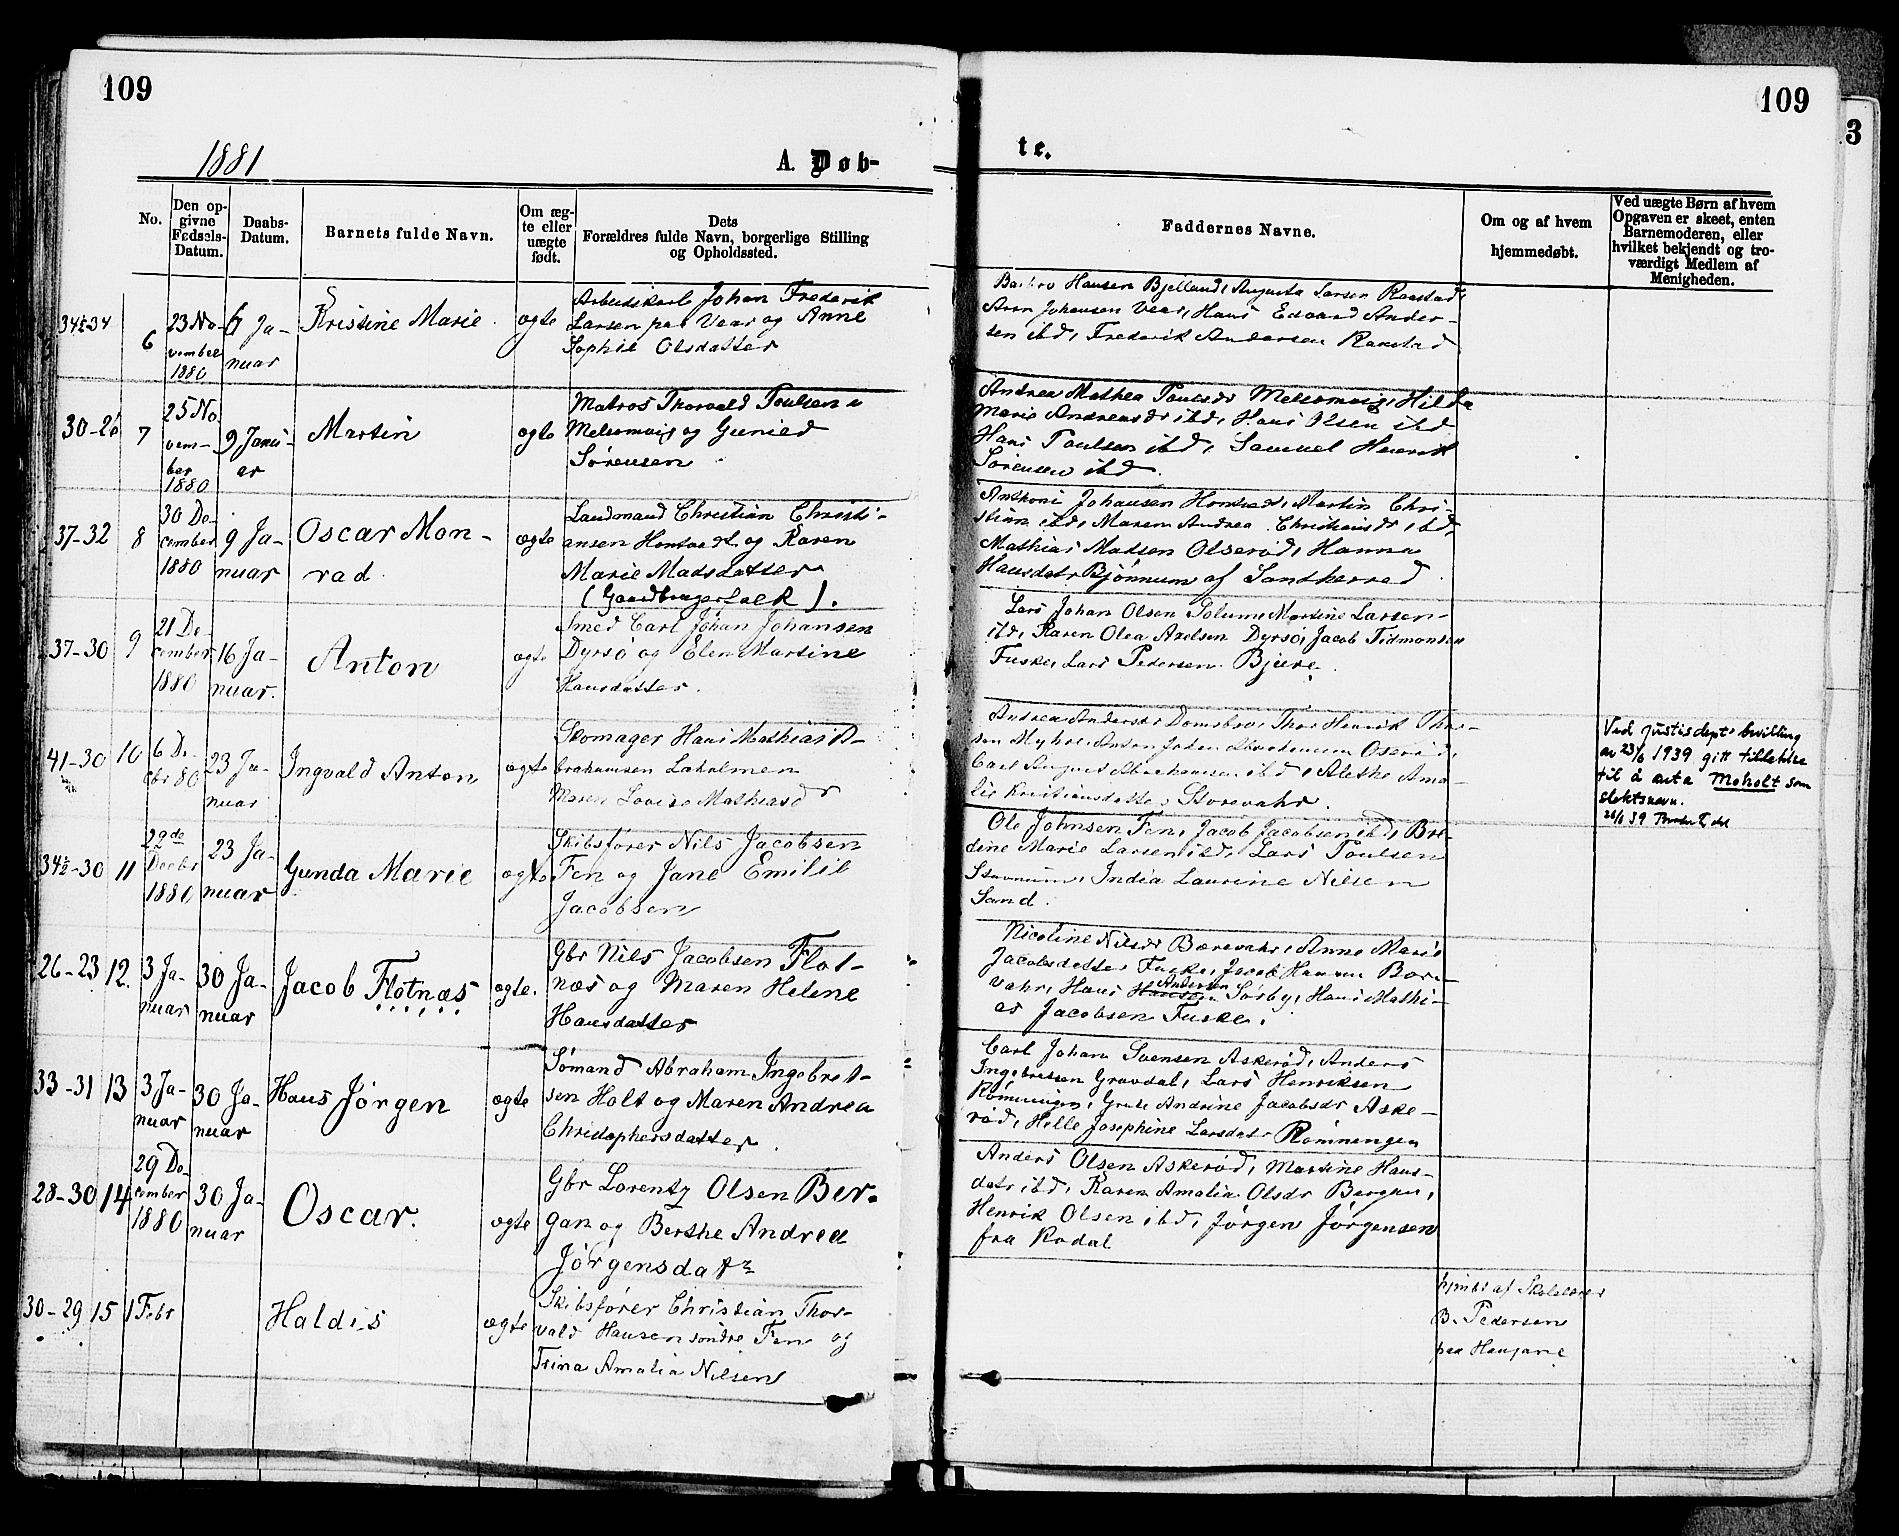 109
109
3
1881
A. Døb-
te.
No.
Den op-
givne
Fødsels-
Datum.
Daabs-
Datum.
Barnets fulde Navn.
Om æg-
te eller
uægte
født.
Dets
Forældres fulde Navn, borgerlige Stilling
og Opholdssted.
Faddernes Navne.
Om og af hvem
hjemmedøbt.
Ved uægte Børn af hvem
Opgaven er skeet, enten
Barnemoderen, eller
hvilket bekjendt og tro-
værdigt Medlem af
Menigheden.
34½-34
6
23 No-
vember
1880
6 Ja-
nuar
Kristine Marie
ægte
Arbeidskarl Johan Frederik
Larsen paa Vear og Anne
Sophie Olsdatter
Barbro Hansen Bjelland, Augusta Larsen Ramstad,
Aron Johansen Vear, Hans Edvard Ander-
sen ibd, Frederik Andersen Ramstad
30-26
7
25 No
vem-
ber
1880
9 Janu-
ar
Martin
ægte
Matros Thorvald Poulsen
Melsomvig og Gunild
Sørensen
Andrea Mathea Poulsdr Melsomvig, Hilda
Marie Andreasdr ibd, Hans Olsen ibd
Hans Poulsen ibd, Samuel Henrik
Sørensen ibd.
37-32
8
30 De-
cember
1880
9 Ja-
nuar
Oscar Mon-
rad
ægte
Landmand Christian Christi-
ansen Hontvedt og Karen
Marie Madsdatter
(Gaardbrugerfolk).
Anthoni Johansen Hontvedt, Martin Chri-
stian ibd, Maren Andrea Christiansdr ibd,
Mathias Madsen Olserød, Hanna
Hansdatr Bjønnum af Sandherred
37-30
9
21 De-
cember
1880
16 Ja-
nuar.
Anton
ægte
Smed Carl Johan Johansen
Dyrsø og Elen Martine
Hansdatter.
Lars Johan Olsen Solum, Martine Larsen
ibd, Karen Olea Axelsen Dyrsø, Jacob Tidmonsen
Fuske, Lars Pedersen Bjuere.
41-30
10
6 De
cbr 80
23 Ja-
nuar
Ingvald Anton
ægte
Skomager Hans Mathias A-
brahamsen Laholmen
Maren Lovise Mathiasdr
Andrea Andersdr
Thor Henrik
Carl August Abrahamsen ibd, Alethe Ama-
lie Kristiansdatter, Storevahr.
Ved justisdepts bevilling
av 23/6 1939 gitt tillatelse
til å anta Moholt som
slektsnavn.
34½-30
11
29de
Decbr
1880
23 Ja-
nuar
Gunda Marie
ægte
Skibsfører Nils Jacobsen
Fen og Jane Emilie
Jacobsen
Ole Johnsen Fen, Jacob Jacobsen ibd, Bre-
dine Marie Larsen ibd, Lars Poulsen
Stavnum, India Laurine Nilsen
Sand.
26-23
12.
3 Ja-
nuar
30 Ja-
nuar
Jacob Flotnæs
ægte.
Gbr Nils Jacobsen Flot-
næs og Maren Helene
Hansdatter
Nicoline Nilsdr Bærevahr, Anne Marie
Jacobsdatter Fuske, Jacob Hansen Bær-
vahr, Hans Hansen Andersen Sørby, Hans Mathi-
as Jacobsen Fuske.
33-31
13
3 Ja-
nuar
30 Ja-
nuar
Hans Jørgen
ægte
Sømand Abraham Ingebret-
sen Holt og Maren Andrea
Christophersdatter.
Carl Johan Svensen Askerød, Anders
Ingebretsen Gravdal, Lars Henriksen
Rømningen, Grete Andrine Jacobsdr Aske-
rød, Helle Josephine Larsdatr Rømningen
28-30
14
29 De-
cember
1880
30 Ja-
nuar
Oscar.
ægte
Gbr Lorentz Olsen Ber-
gan og Berthe Andrea
Jørgensdatr
Anders Olsen Askerød, Martine Hans-
datr ibd, Karen Amalia Olsdr Bergan,
Henrik Olsen ibd, Jørgen Jørgensen
fra Rødal
30-29
15
1 Febr
Haldis
ægte
Skibsfører Christian Thor-
vald Hansen søndre Fen og
Trina Amalia Nilsen
hjmbt af Skolelærer
B. Pedersen
paa Haugane